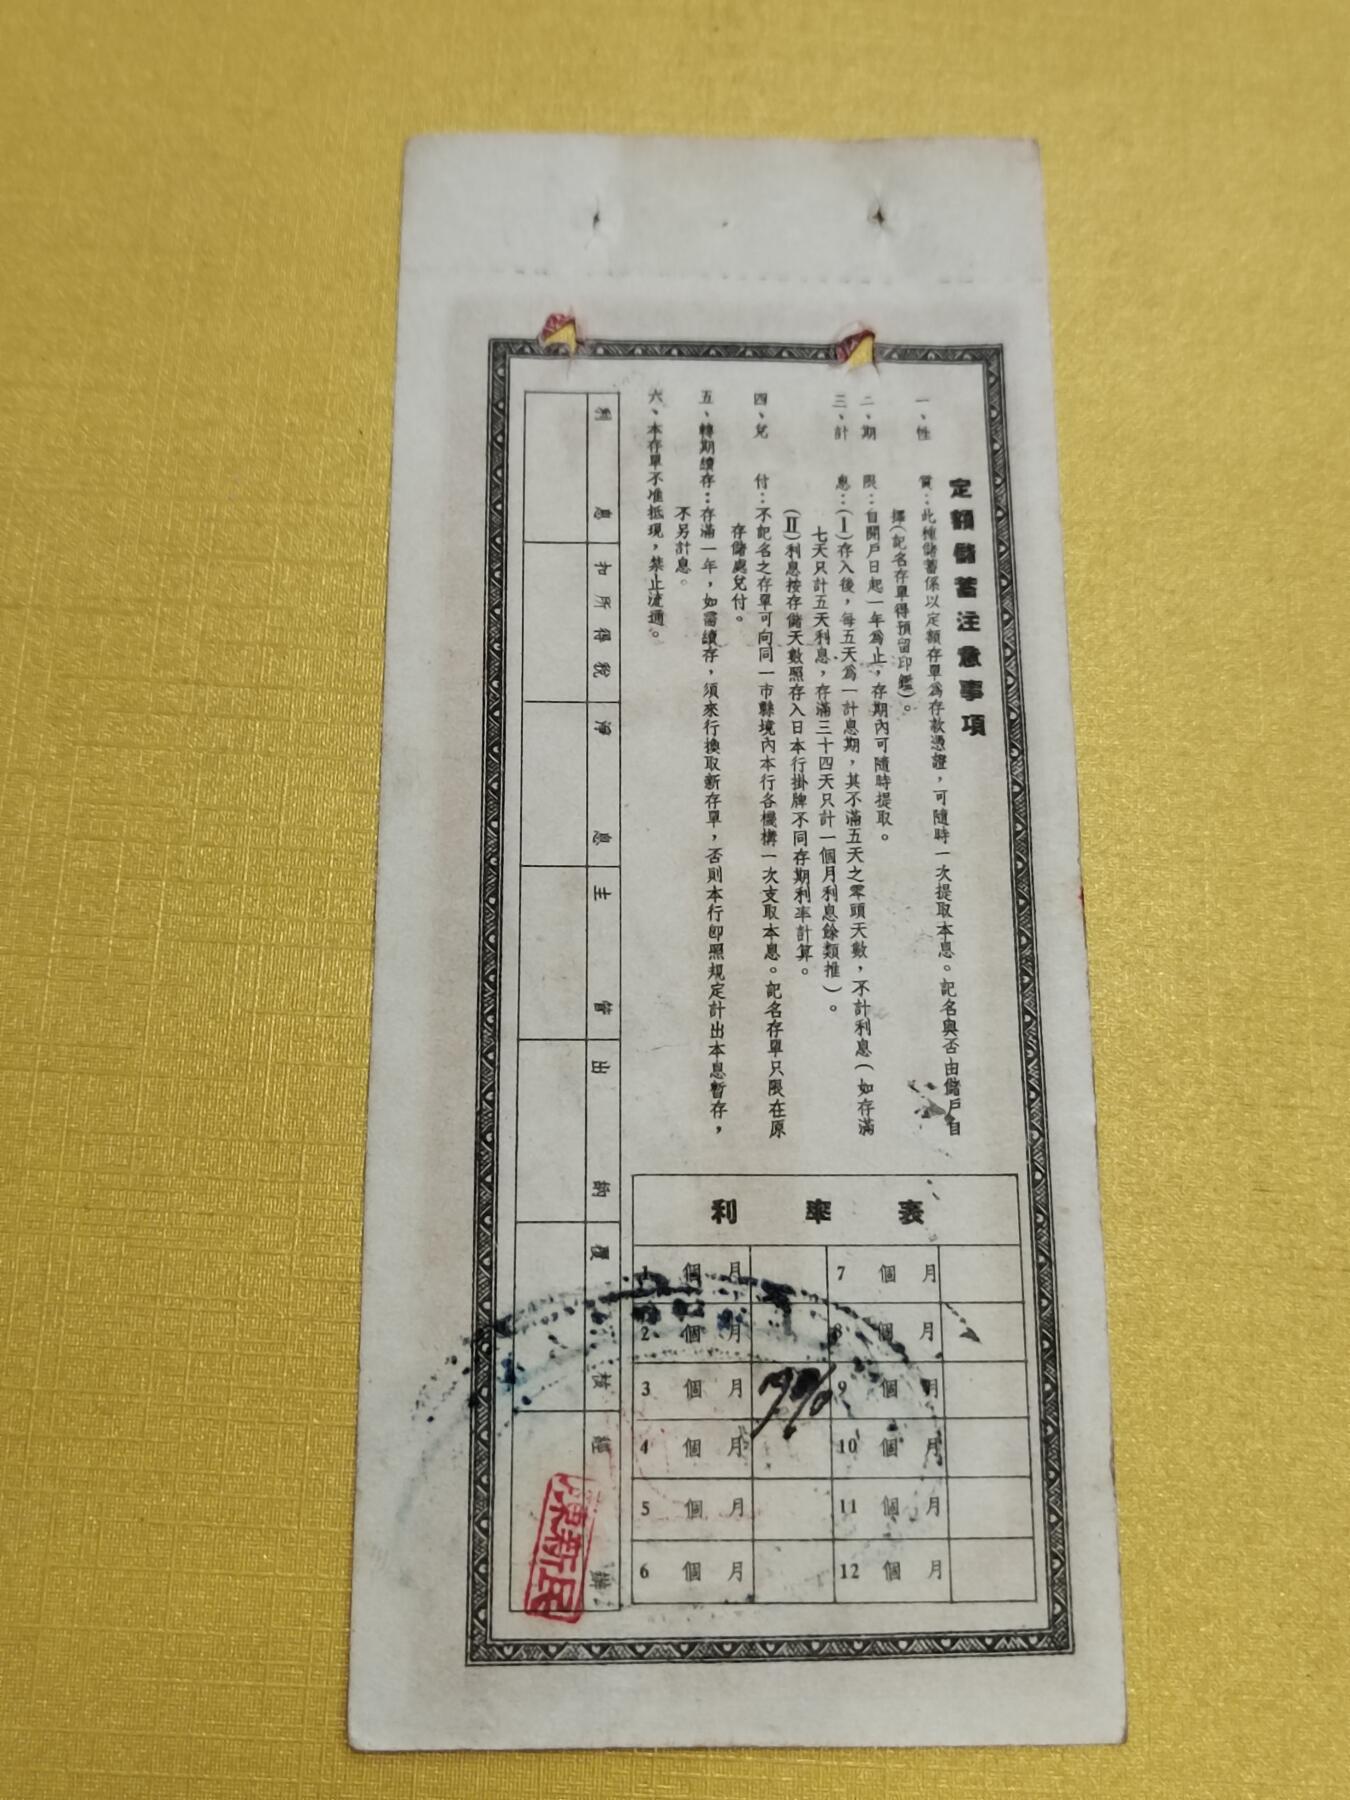 定額儲蓄注意事項
一、性質：此種儲蓄係以定額存單為存款憑證，可隨時一次提取本息。記名與否由儲戶自
擇（記名存單得預留印鑑）。
二、期限：自開戶日起一年為止，存期內可隨時提取。
三、計息：（I）存入後，每五天為一計息期，其不滿五天之零頭天數，不計利息（如存滿
七天只計五天利息，存滿三十四天只計一個月利息餘類推）。
（II）利息按存儲天數照存入日本行掛牌不同存期利率計算。
四、兌付：不記名之存單可向同一市縣境內本行各機構一次支取本息。記名存單只限在原
存儲處兌付。
五、轉期續存：存滿一年，如需續存，須來行換取新存單，否則本行即照規定計出本息暫存，
不另計息。
六、本存單不准抵現，禁止流通。
利率表
1個月 7個月
2個月 8個月
3個月 9個月
4個月 10個月
5個月 11個月
6個月 12個月
利息
扣所得稅
淨息
主管
出納
覆核
經辦
陳新民